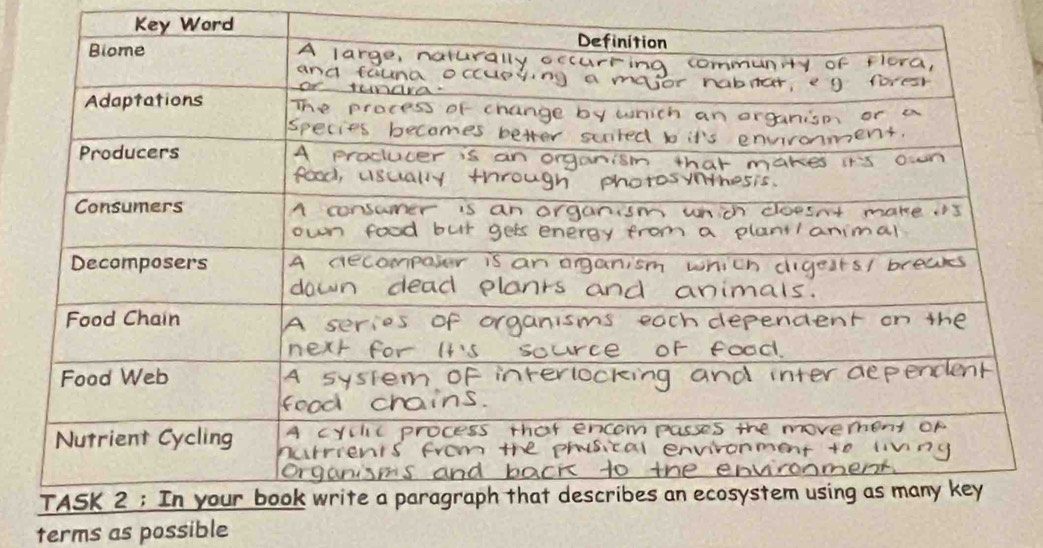 Key Word
Definition
Biome
A large, naturally occurring community of flora,
and fauna occupying a major habitat, eg forest
or tundra.
Adaptations
The process of change by which an organism or a
species becomes better suited to it's environment.
Producers
A producer is an organism that makes it's own
food, usually through photosynthesis.
Consumers
A consumer is an organism which doesn't make its
own food but gets energy from a plant/animal
Decomposers
A decomposer is an organism which digests/breaks
down dead plants and animals.
Food Chain
A series of organisms each dependent on the
next for it's source of food.
Food Web
A system of interlocking and inter dependent
food chains.
Nutrient Cycling
A cyclic process that encompasses the movement of
nutrients from the physical environment to living
organisms and back to the environment.
TASK 2 : In your book write a paragraph that describes an ecosystem using as many key
terms as possible